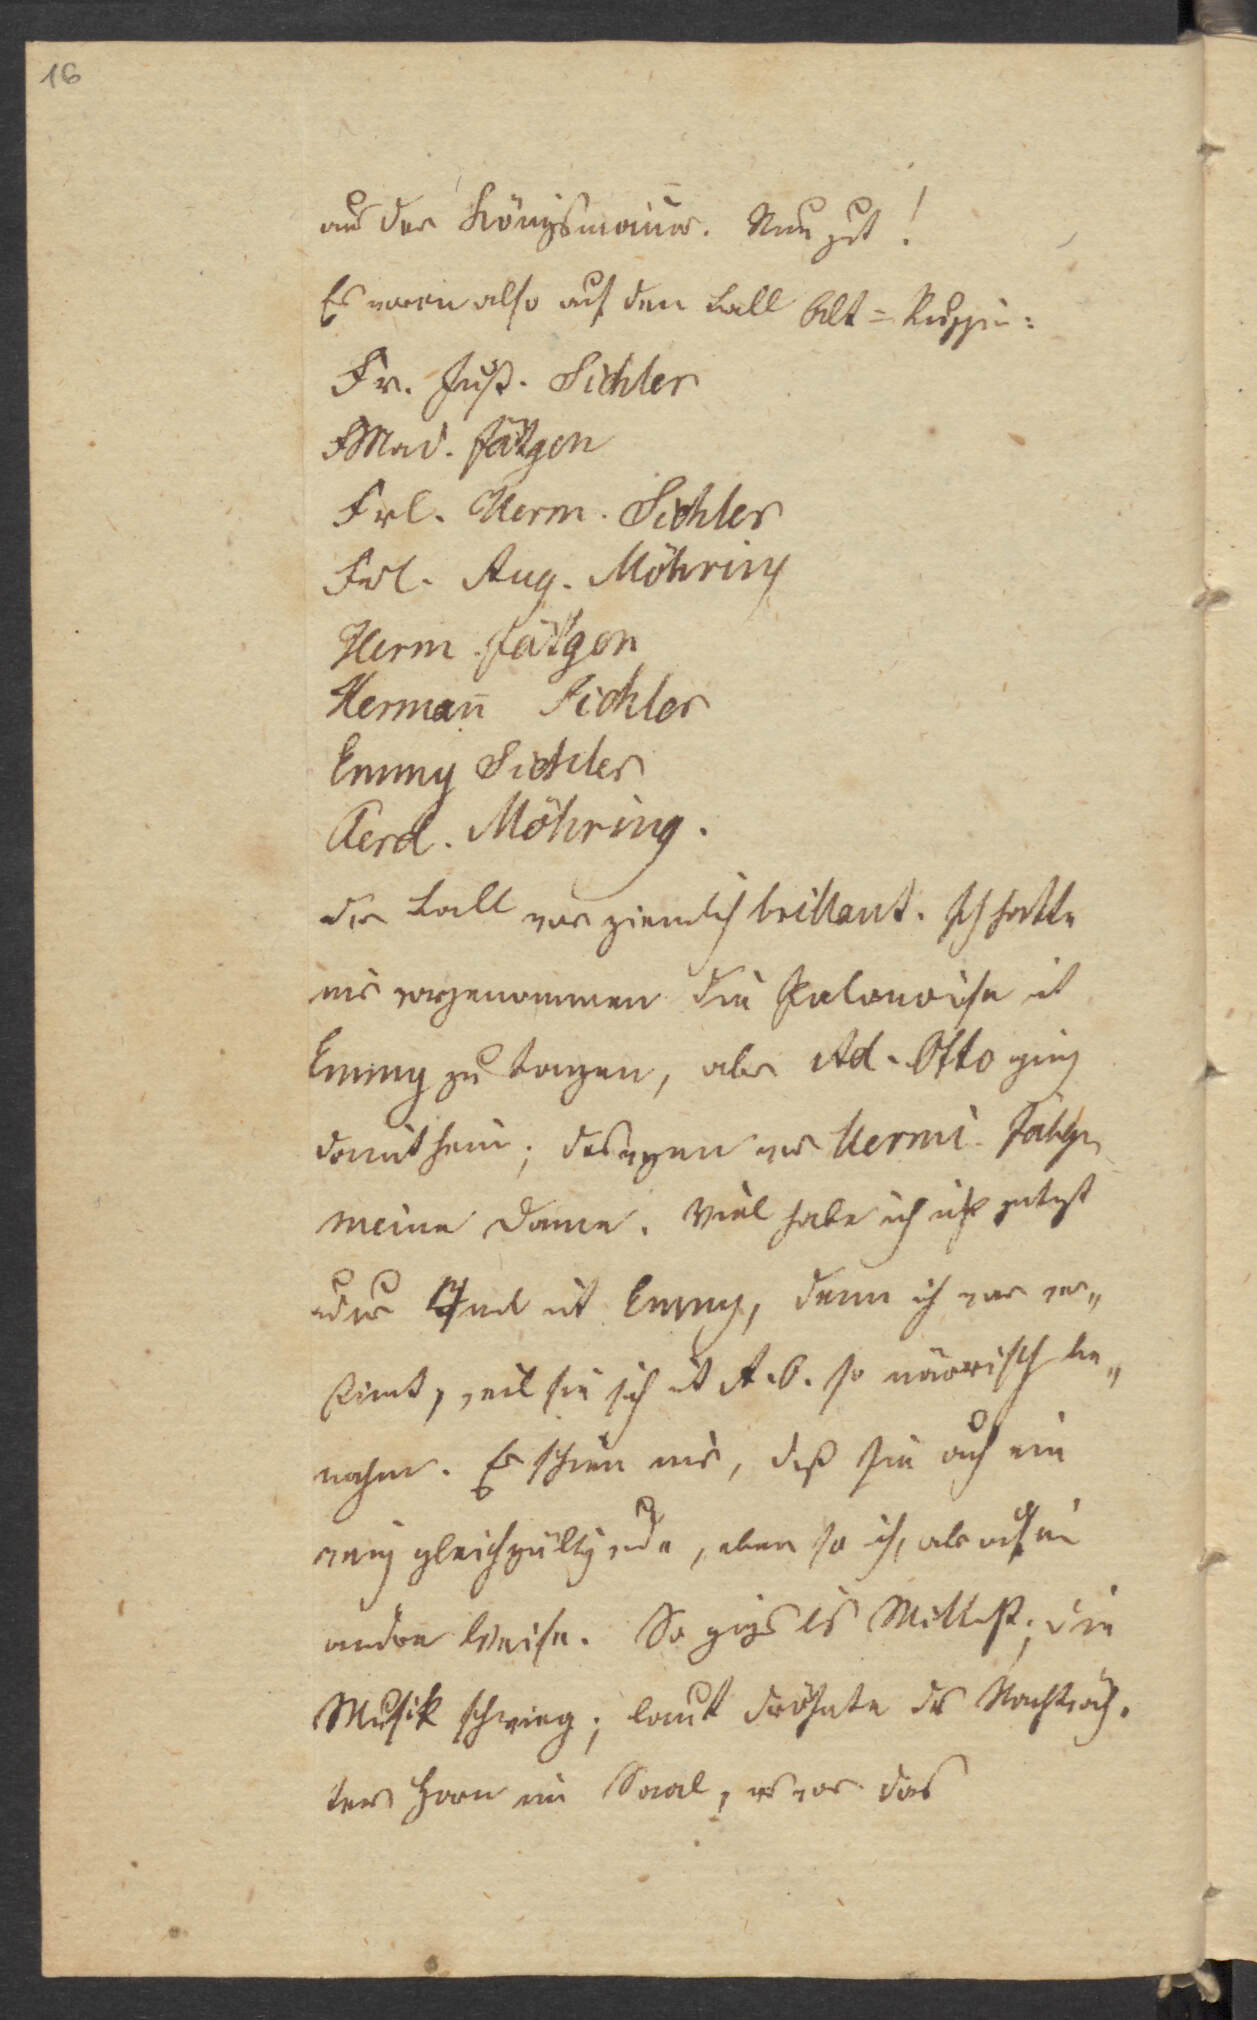 16
aus der Königsmauer. Nun gut!
Es waren also auf den Ball Alt=Ruppin:
Fr. Just. Sichler
Mad. Fätgen
Frl. Herm. Sichler
Frl. Aug. Möhring
Herm. Fätgen
Hermañ Sichler
Emmy Sichler
Ferd. Möhring.
Der Ball war ziemlich brillant. Ich hatte
mir vorgenommen die Polonoise mit
Emmy zu tanzen, aber Ad. Otto ging
damit hein; deswegen war Hermi. Fätgen
meine Dame. Viel habe ich nicht getanzt
und mit Emmy, denn ich war ver„
stimt, weil sie sich mit A. O. so närrisch be„
nahm. Es schien mir, daß sie auch ein
wenig gleichgültig wurde, eben so ich, aber auf ein
andre Weise. So gings bis Mittern.; die
Musik schwieg; laut dröhnte des Nachtwäch.
ters Horn im Saal, es war das